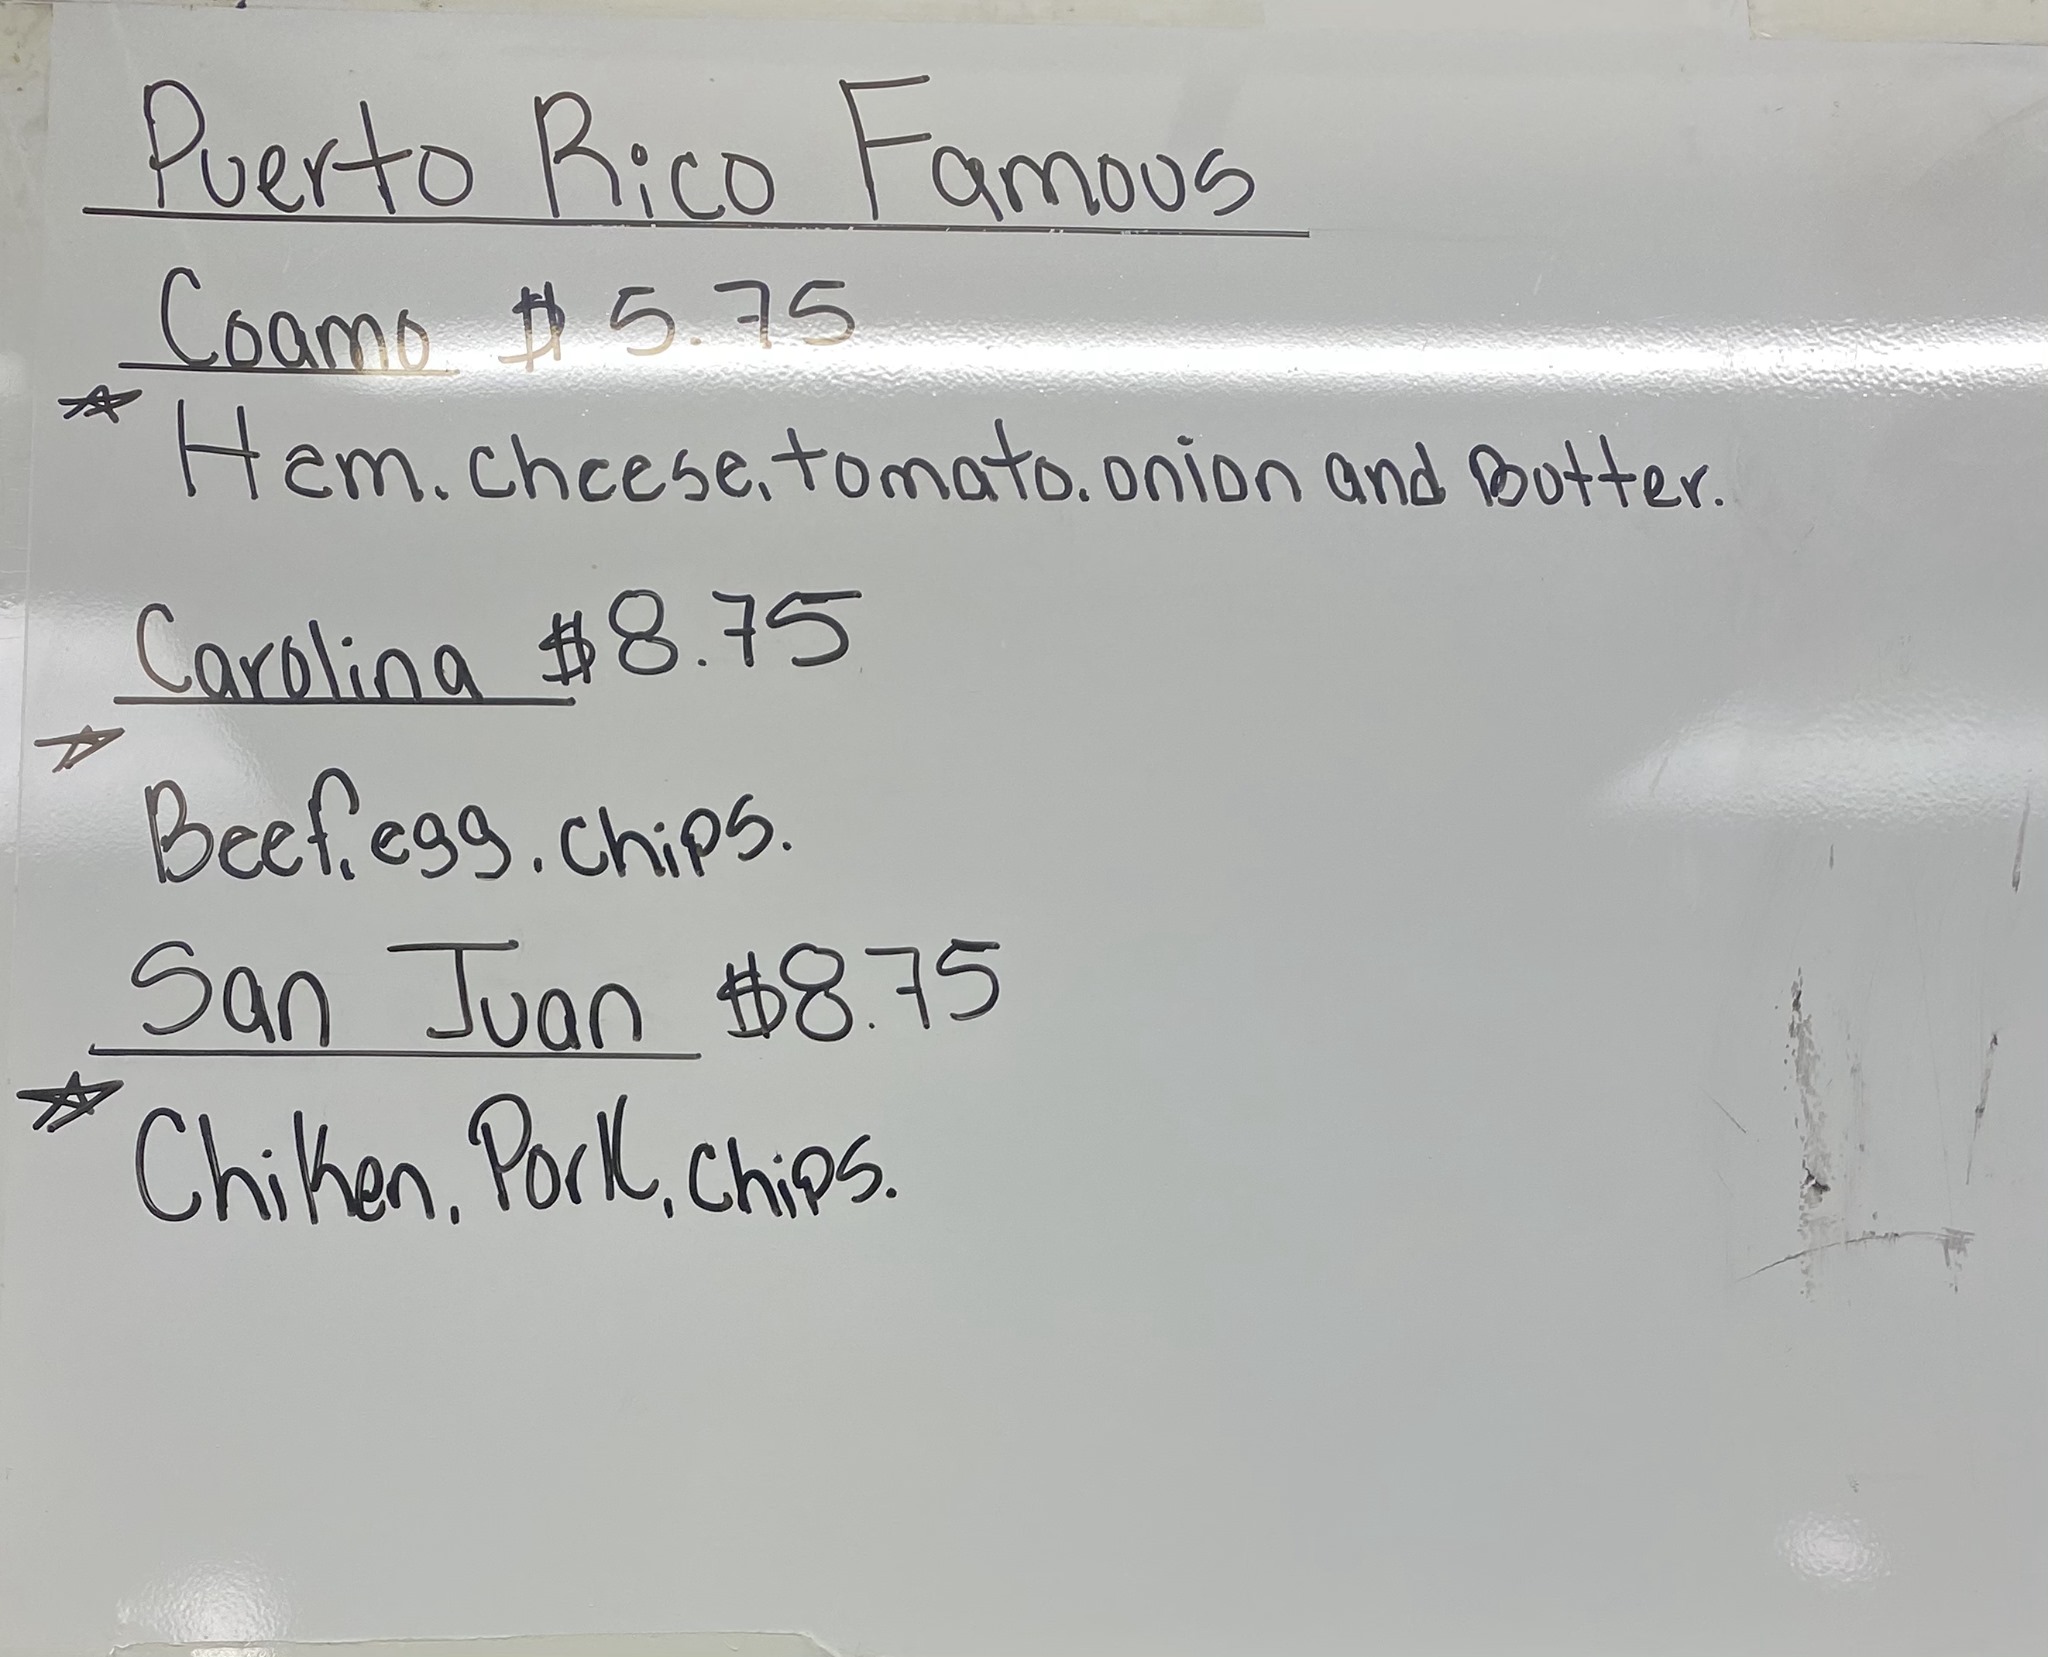 Puerto Rico Famous
Coamo $5.75
Ham. cheese. tomato. onion and Butter.
Carolina $8.75
Beef. egg. chips.
San Juan $8.75
Chiken. Pork. chips.